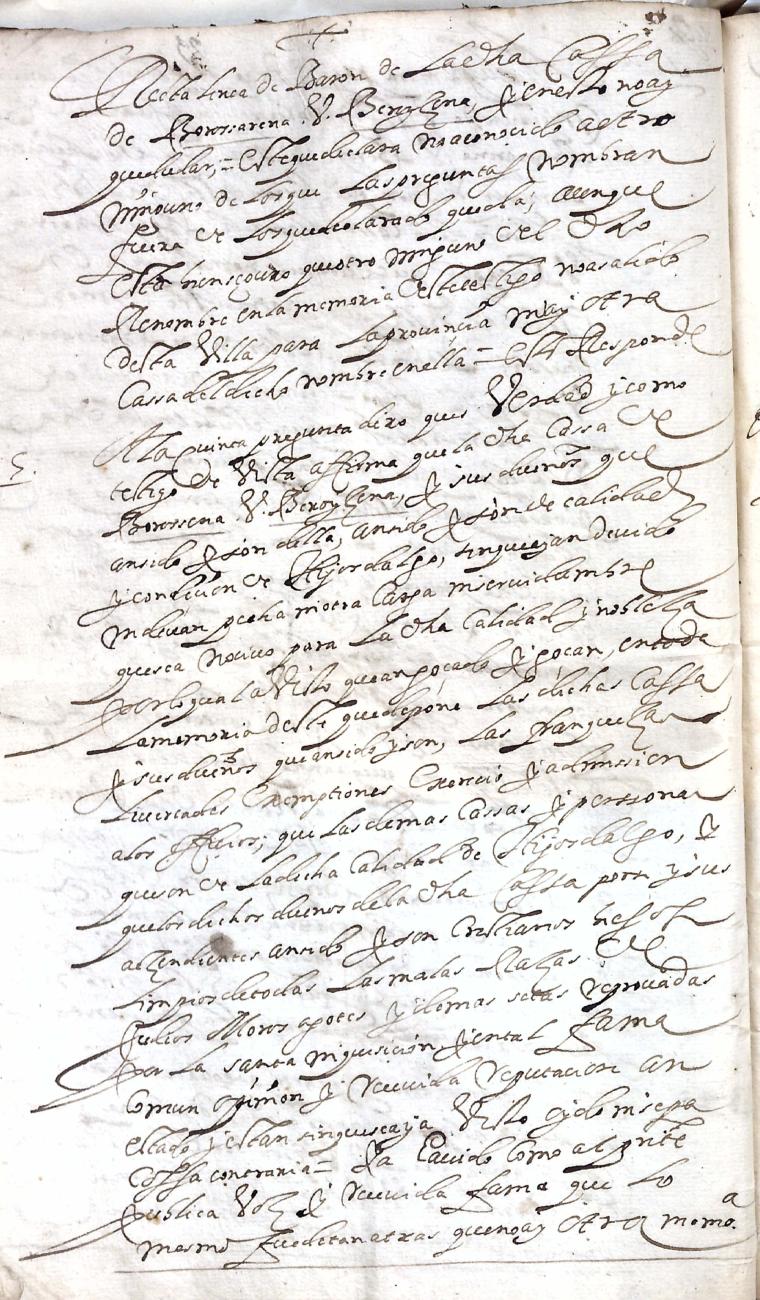 Recta linea de Baron de La dha Cassa
de Bororsarena V. Beroyzena, y en esto no ay
que dudar, = este que declara no a conocido a otro
ninguno de los que las preguntas nombran
fuera de los que declarado queda, aunque
esta bien seguro que otro ninguno del dho
Renombre en la memoria deste testigo no a salido
desta Villa para la provincia ni ay otra
Cassa del dicho nombre en ella = esto Responde
5. A la quinta pregunta dixo que es Verdad y como
testigo de Vista affirma que la dha Cassa de
Bororsena V. Beroyzena, y sus dueños que
an sido y son della, an sido y son de calidad
y condicion de Hijosdalgo, sin que ayan devido
ni devan pecha ni otra Carga ni servidumbre
que sea nocivo para La dha Calidad y nobleza
por lo qual a Visto que an goçado y goçan, en toda
la memoria deste que depone las dichas Cassa
y sus dueños que an sido y son, las franquezas
livertades Exemptiones y admission
a los officios, que las demas Cassas y personas
que son de la dicha Calidad de Hijosdalgo, y
que los dichos dueños de la dha Cassa y sus
açendientes an sido y son Cristianos
limpios de todas las malas Razas de
Judios Moros agotes y demas setas reprovadas
por la santa inquisicion y en tal fama
comun opinion y reputacion an
estado y estan sin que se aya Visto oydo ni sepa
Cossa contraria = y a oido como al pnte
publica Voz y fama que lo
mesmo fue de tan atras que no ay otra memoa.